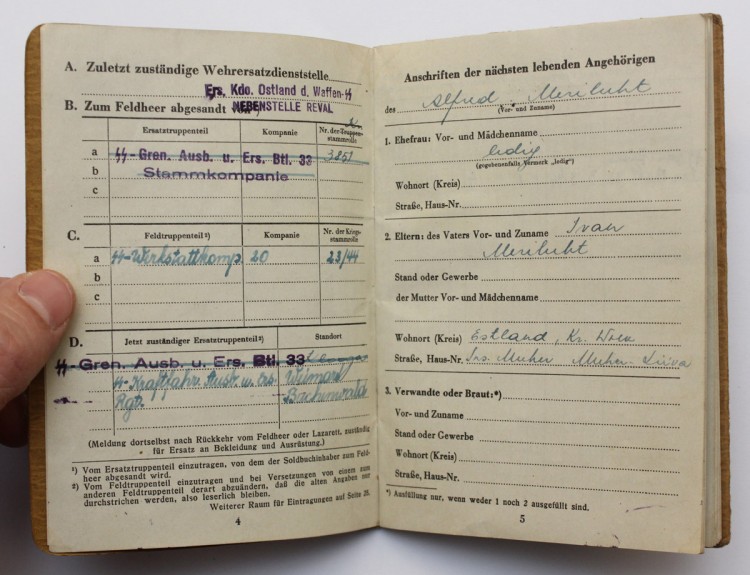 A. Zuletzt zuständige Wehrersatzdienststelle
Ers. Kdo. Ostland d. Waffen-SS
B. Zum Feldheer abgesandt von ¹)
NEBENSTELLE REVAL
Ersatztruppenteil Kompanie Nr. der Truppen-
stammrolle
a SS-Gren. Ausb. u. Ers. Btl. 33 3851
b Stammkompanie
c
C. Feldtruppenteil²) Kompanie Nr. der Kriegs-
stammrolle
a SS-Werkstattkomp. 20 23/44
b
c
D. Jetzt zuständiger Ersatztruppenteil²) Standort
SS-Gren. Ausb. u. Ers. Btl. 33
SS-Kraftfahr. Ausb. u. Ers. Weimar
Rgt. Buchenwald
(Meldung dortselbst nach Rückkehr vom Feldheer oder Lazarett, zuständig
für Ersatz an Bekleidung und Ausrüstung.)
¹) Vom Ersatztruppenteil einzutragen, von dem der Soldbuchinhaber zum Feld-
heer abgesandt wird.
²) Vom Feldtruppenteil einzutragen und bei Versetzungen von einem zum
anderen Feldtruppenteil derart abzuändern, daß die alten Angaben nur
durchstrichen werden, also leserlich bleiben.
Weiterer Raum für Eintragungen auf Seite
4
Anschriften der nächsten lebenden Angehörigen
des Alfred
(Vor- und Zuname)
1. Ehefrau: Vor- und Mädchenname
ledig
(gegebenenfalls Vermerk „ledig“)
Wohnort (Kreis)
Straße, Haus-Nr.
2. Eltern: des Vaters Vor- und Zuname Ivan
Stand oder Gewerbe
der Mutter Vor- und Mädchenname
Wohnort (Kreis) Estland, Kr.
Straße, Haus-Nr.
3. Verwandte oder Braut:*)
Vor- und Zuname
Stand oder Gewerbe
Wohnort (Kreis)
Straße, Haus-Nr.
*) Ausfüllung nur, wenn weder 1 noch 2 ausgefüllt sind.
5